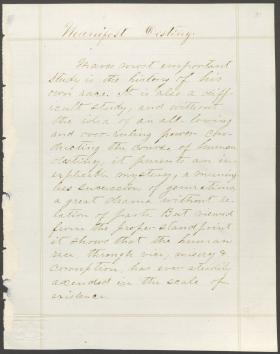 Manifest Destiny.
Mans most important
study is the history of his
own race. It is also a diff-
icult study, and without
the idea of an all loving
and over ruling power con-
ducting the course of human
destiny, it presents an in-
explicable mystery, a meaning
less succession of generations
a great drama without re-
lation of parts. But viewed
from the proper standpoint
it shows that the human
race through vice, misery &
corruption, has ever steadily
ascended in the scale of
existence.